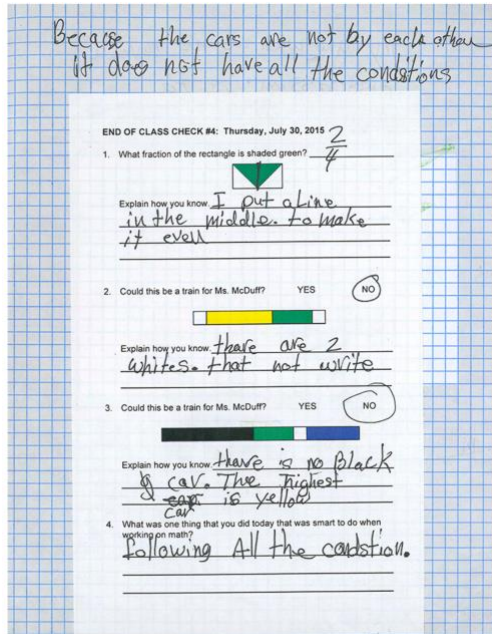 Because the cars are not by each other
it does not have all the condstions
END OF CLASS CHECK #4: Thursday, July 30, 2015
1. What fraction of the rectangle is shaded green? 2/4
Explain how you know. I put a Line
in the middle. to make
it even
2. Could this be a train for Ms. McDuff? YES NO
Explain how you know. thare are 2
whites. that not write
3. Could this be a train for Ms. McDuff? YES NO
Explain how you know. thare is no Black
car. The highest
car is yellow
4. What was one thing that you did today that was smart to do when
working on math?
following All the condstion.